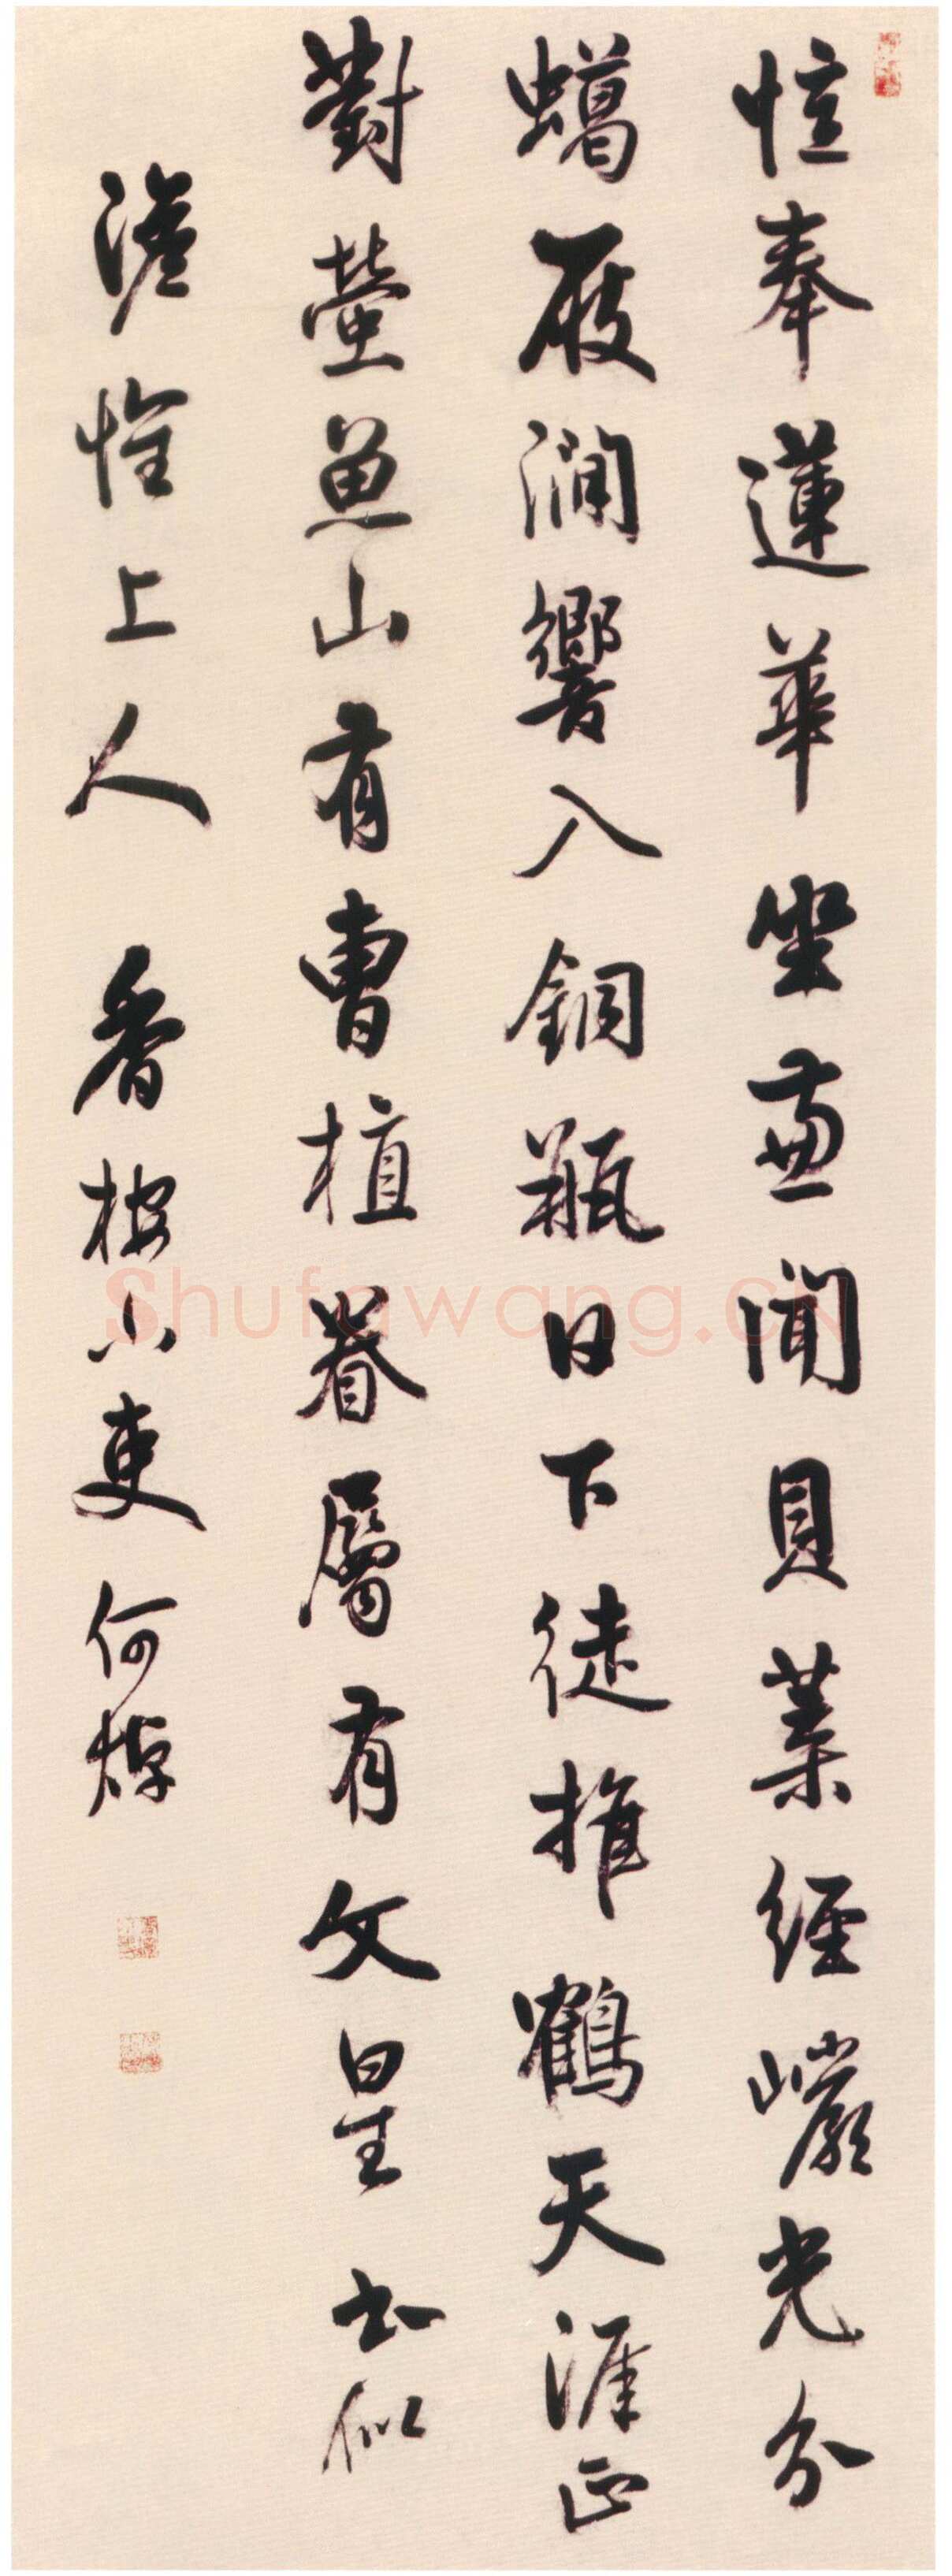 憶奉蓮華坐兼聞貝葉經巖光分
蠟屐澗響入銅瓶日下徒推鶴天涯正
對螢魚山有曹植眷屬有文星書似
澹上人香桉小吏何焯
Shufawang.CN